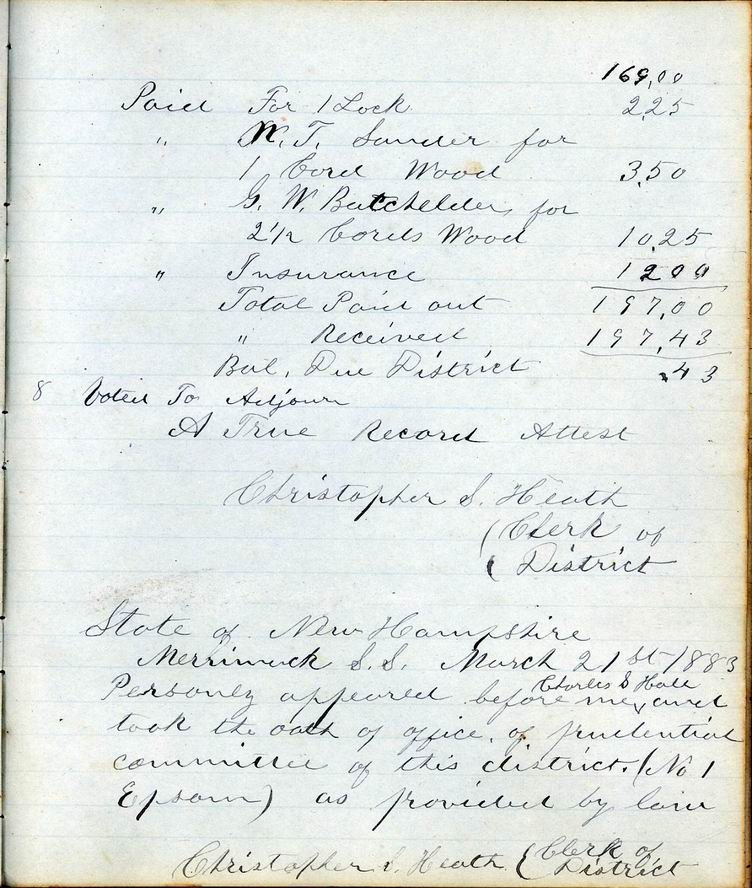 169,00
Paid For 1 Lock 2,25
" W. T. Sander for
1 Cord Wood 3,50
" G. W. Batchelder, for
2 1/2 Cords Wood 10,25
" Insurance 12 00
Total Paid out 197,00
" Received 197,43
Bal. Due District ,43
8 Voted To Adjourn
A True Record Attest
Christopher S. Heath
(Clerk of
( District
State of New Hampshire
Merrimack S.S. March 21st 1883
Personly appeared before me, Charles S Hall and
took the oath of office, of prudential
committee of this district. (No 1
Epsom) as provided by law
Christopher S. Heath { Clerk of
District